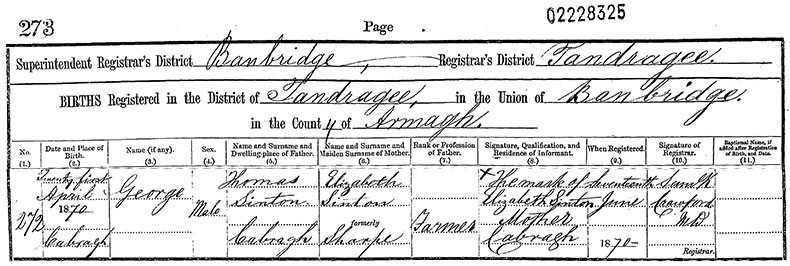 02228325
273 Page
Superintendent Registrar's District Banbridge, Registrar's District Tandragee.
BIRTHS Registered in the District of Tandragee, in the Union of Banbridge.
in the County of Armagh.
No. (1.) Date and Place of Birth. (2.) Name (if any). (3.) Sex. (4.) Name and Surname and Dwelling-place of Father. (5.) Name and Surname and Maiden Surname of Mother. (6.) Rank or Profession of Father. (7.) Signature, Qualification, and Residence of Informant. (8.) When Registered. (9.) Signature of Registrar. (10.) Baptismal Name, if added after Registration of Birth, and Date. (11.)
272 Twenty first April 1870 Cabragh George Male Thomas Sinton Cabragh Elizabeth Sinton formerly Sharpe Farmer X The mark of Elizabeth Sinton Mother Cabragh Seventeenth June 1870 Saml K Crawford MD Registrar.